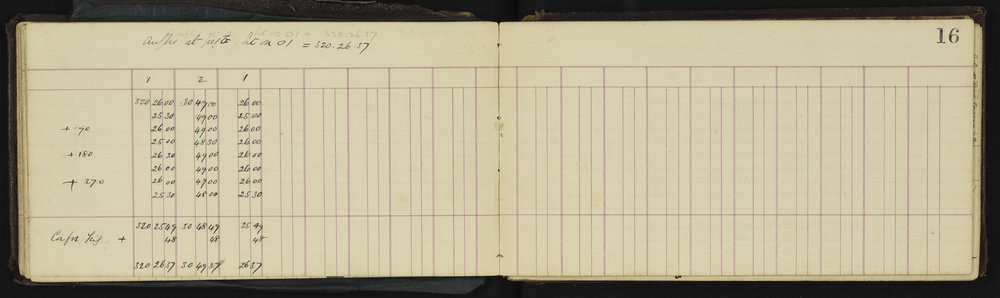 16
at = 320.26.37
1 2 1
320 26 00 30 49 00 26 00
25 30 49 00 25 00
+ 90 26 00 49 00 26 00
25 00 48 30 26 00
+ 180 26 30 49 00 26 00
26 00 49 00 26 00
+ 270 26 00 49 00 26 00
25 30 48 00 25 30
320 25 49 30 48 49 25 49
+ 48 48 48
320 26 37 30 49 37 26 37